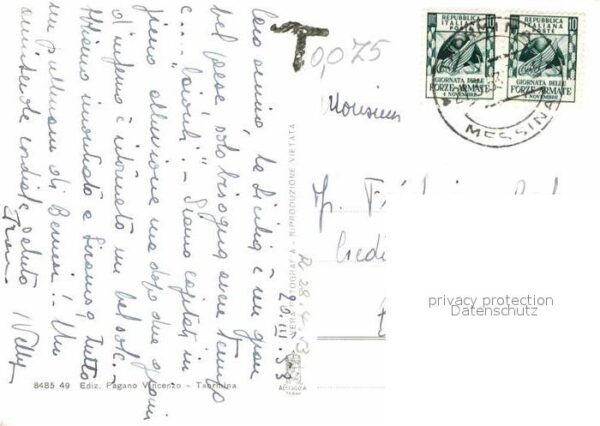 Caro amico, la Sicilia è un gran
bel paese solo bisogna avere tempo
e.... "baiocchi" - Siamo capitati in
pieno alluvione ma dopo due giorni
d'inferno è intornato un bel sole. -
Abbiamo incontrato a Siracusa, tutto
un pullman di Bernesi!. Un
cordiale saluto
Nelly
20.III.53
T
0,075
Monsieur
Credi
R 28.4.53
REPUBBLICA ITALIANA
POSTE
10
GIORNATA DELLE
FORZE ARMATE
4 NOVEMBRE
REPUBBLICA ITALIANA
POSTE
10
GIORNATA DELLE
FORZE ARMATE
4 NOVEMBRE
MESSINA
VERA FOTOGRAFIA - RIPRODUZIONE VIETATA
8485 49 Ediz. Pagano Vincenzo - Taormina
privacy protection
Datenschutz